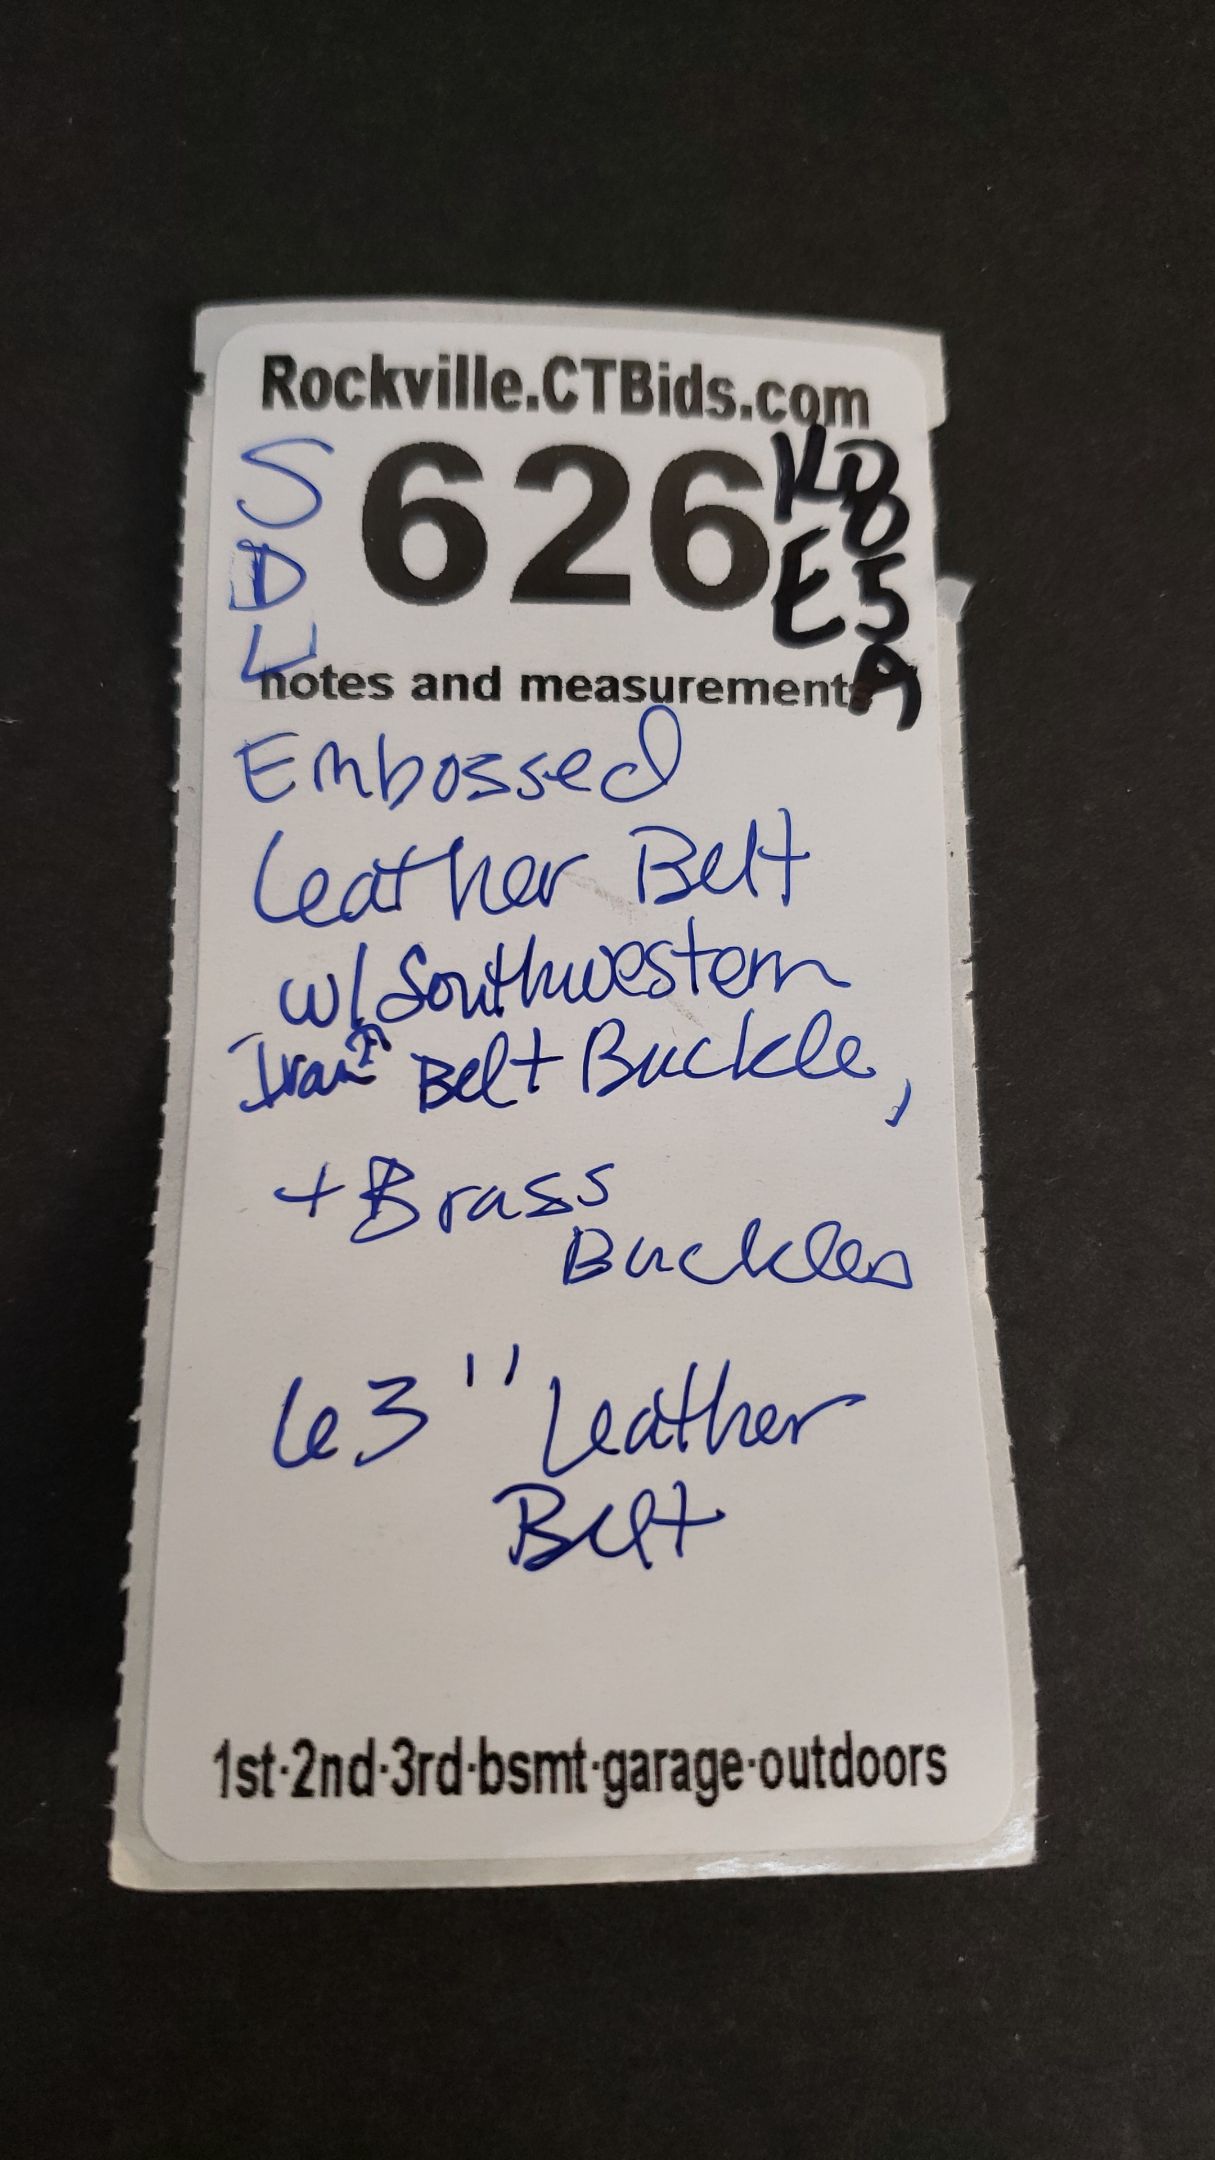 Rockville.CTBids.com
S
D
L
626
E
5
A
notes and measurements
Embossed
Leather Belt
w/ Southwestern
Belt Buckle,
+ Brass
Buckles
63" Leather
Belt
1st·2nd·3rd·bsmt·garage·outdoors